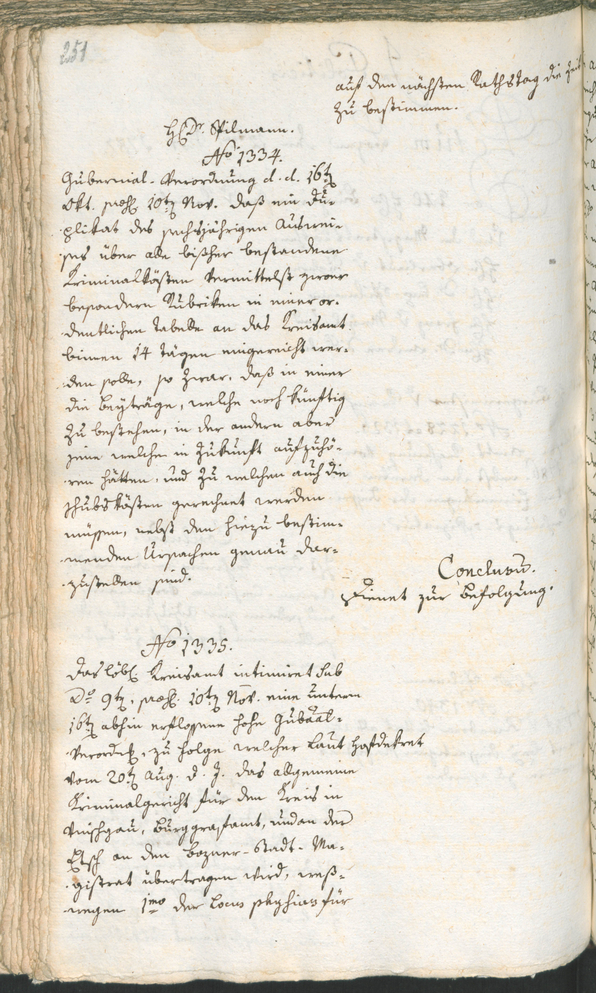 251
auf den nächsten Rathstag die Zeit
zu bestimmen.
H: Dr. Spilmann.
No 1334.
Gubernial-Verordnung d. d. 16ten
Okt. praes. 10ten Nov. daß ein Du-
plikat des sechsjährigen Auswei-
ses über alle bißher bestandene
Kriminalkösten vermittelst zwoer
besondern Rubriken in einer or-
dentlichen Tabelle an das Kreisamt
binnen 14 Tägen eingereicht wer-
den solle, so zwar, daß in einer
die Beyträge, welche noch künftig
zu bestehen, in der andern aber
jene welche in Zukunft aufzuhö-
ren hätten, und zu welchen auch die
Schubskösten gerechnet werden
müssen, nebst den hiezu bestim-
menden Ursachen genau dar-
zustellen sind.
Conclusum.
Dienet zur Befolgung.
No 1335.
Das löbl. Kreisamt intimiret sub
Do 9ten, praes. 10ten Nov. eine untern
16ten abhin erflossene hohe Gubaal-
Verordng, zu folge welcher laut Hofdekret
vom 20ten Aug. d. J. das allgemeine
Kriminalgericht für den Kreis in
Vinschgau, Burggrafamt, und an der
Etsch an den Bozner-Stadt-Ma-
gistrat übertragen wird, weß-
wegen 1mo der Locus für